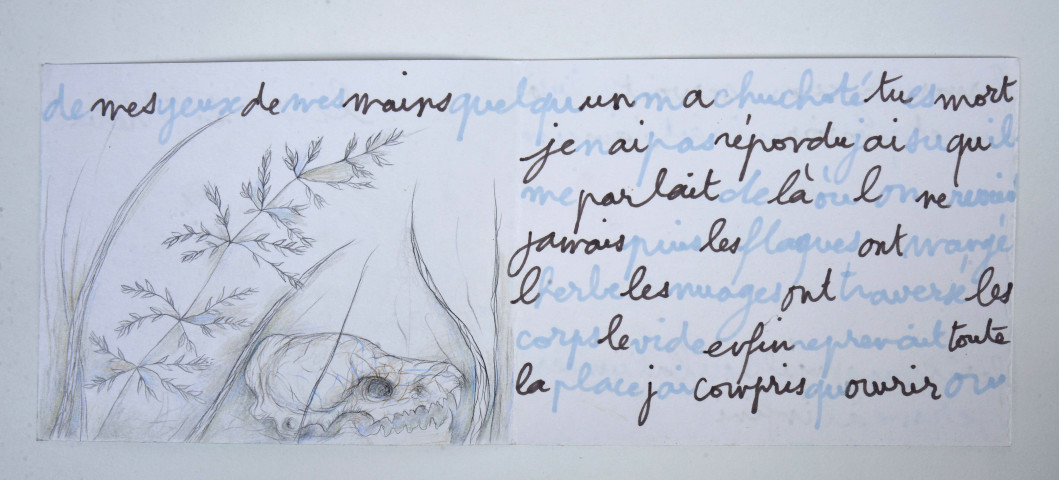 de mes yeux de mes mains quelqu un m a chuchoté tu es mort
je n ai pas répondu j ai su qu il
me parlait de là où l on ne revient
jamais puis les flaques ont mangé
l herbe les nuages ont traversé les
corps le vide enfin reprenait toute
la place j ai compris qu ouvrir ou